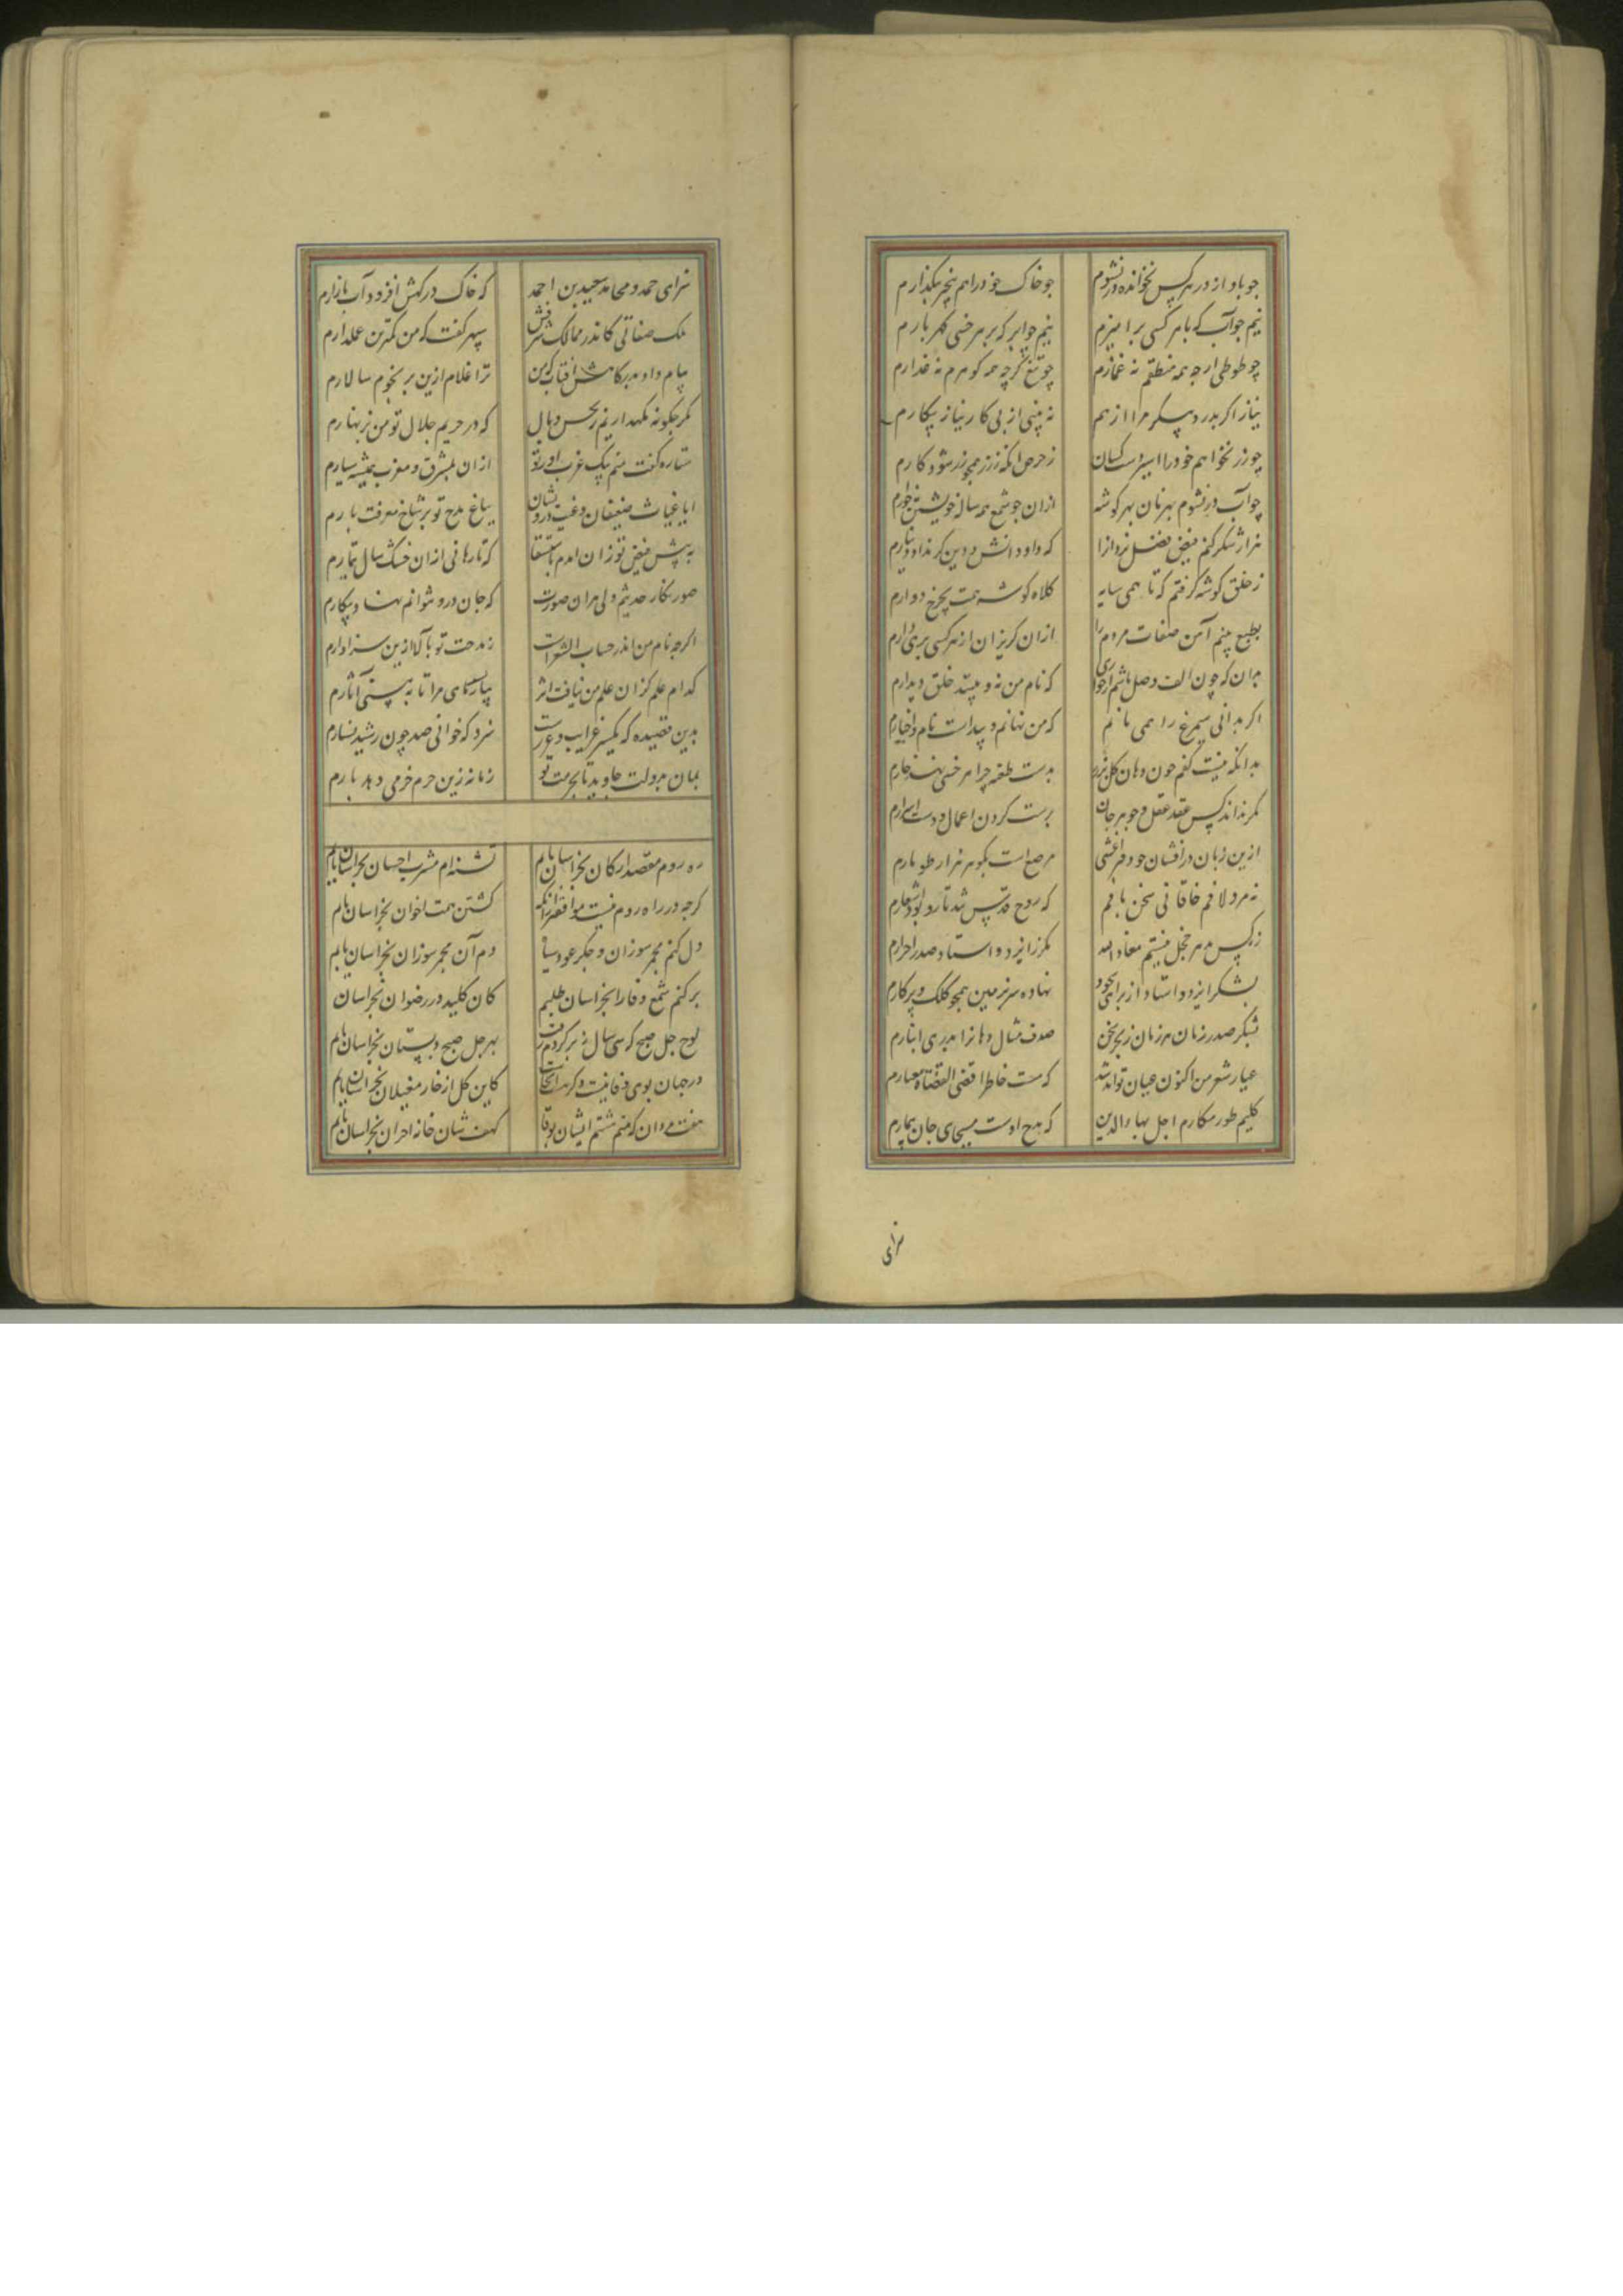 چو باد از در هر کس نخوانده در نشوم
چو خاک خود را هم بخیره نگذارم
نیم چو آب که با هر کسی برآمیزم
نیم چو ابر که بر هر خسی گهر بارم
چو طوطی ارچه همه منطقم نه غمازم
چو تیغ گرچه همه گوهرم نه غدارم
نیاز اگر بدرد پیکر مرا از هم
نه بینی از پی کار نیاز پیکارم
چو زر نخواهم خود را اسیر دست کسان
ز حرص آنکه ز زر همچو زر شود کارم
چو آب در نشوم بهر نان بهر گوشه
ازان چو شمع همه ساله خویشتن خوارم
هزار شکر کنم فیض فضل یزدانرا
که داد دانش و دین گر نداد دینارم
ز خلق گوشه گرفتم که تا همی سایه
کلاه گوشه همت بچرخ دوارم
بطبع بینم آهن صفات مردم را
ازان گریزان از هر کسی پری وارم
بران که چون الف وصل باشم ار جویی
که نام من نه و بیند خلق دیدارم
اگر بدانی سیمرغ را همی مانم
که من نهانم و پیداست نام و اخبارم
بدانکه نیست کفم چون دهان گل پر زر
بدست طعنه چرا هر خسی نهد خارم
مگر نداند کس عقد عقل و جوهر جان
برست کردن اعمال و دست اسرارم
ازین زبان در افشان چو دفتر اعشی
مرصع است بگوهر هزار طومارم
نه مرد لافم خاقانی سخن بافم
که روح قدس تند تار و پود اشعارم
ز کس بمهر خجل نیستم معاذ الله
مگر ز ایزد و استاد صدر احرارم
بشکر ایزد و استاد از برای سجود
نهاده سر بزمین همچو کلک و پرگارم
بشکر صدر زمان هر زمان ز بحر سخن
صدف مثال دهانرا بدر می انبارم
عیار شعر من اکنون عیان تواند شد
که هست خاطر اقضی القضاة معیارم
کلیم طور مکارم اجل بهاء الدین
که مدح اوست مسیحای جان بیمارم
سزای
سزای حمد و محامد سعید بن احمد
که خاک درگهش افزود آب بازارم
ملک صفاتی کاندر ممالک شرفش
سپهر گفت که من کمترین عملدارم
پیام داد بدرگاهش افتاب که من
ترا غلام ازین بر نجوم سالارم
مگر چگونه نگهداریم ز نحس وبال
که در حریم جلال تو من بزنهارم
ستاره گفت منم پیک عزت او در تو
ازان بمشرق و مغرب همیشه سیارم
ایا غیاث ضعیفان و غیث درویشان
بباغ مدح تو بر شاخ معرفت بارم
به پیش فیض تو زان آمدم باستسقا
که تا رهانی ازان خشک سال تیمارم
صور نگار حدیثم ولی هران صورت
که جان درو نتوانم نهاد ننگارم
اگرچه نام من اندر حساب الشعراست
ز مدحت تو بآلا ازین سزاوارم
کدام علم کزان علم من نیافت اثر
بیازمای مرا تا به بینی آثارم
بدین قصیده که یکسر غرایب و غررست
سزد که خوانی صد چون رشید و بشارم
بمان بدولت جاوید تا بحرمت تو
زمانه زین حرم خرمی دهد بارم
ره روم مقصد ارکان بخراسان یابم
تشنه ام مشرب احسان بخراسان یابم
گرچه در راه روم نیست موافق زانکه
گشتن همت اخوان بخراسان یابم
دل کنم مجمر سوزان و جگر عود سیاه
دم آن مجمر سوزان بخراسان یابم
برکنم شمع وفا را بخراسان طلبم
کان کلید در رضوان بخراسان
لوح چل صبح که سی سال ز بر کردم
بهر چل صبح دبستان بخراسان یابم
در جهان بوی وفا نیست وگر هست آنجاست
کاین گل از خار مغیلان بخراسان یابم
هفت مردان که منم هشتم ایشان بوفا
کهف شان خانه احران بخراسان یابم